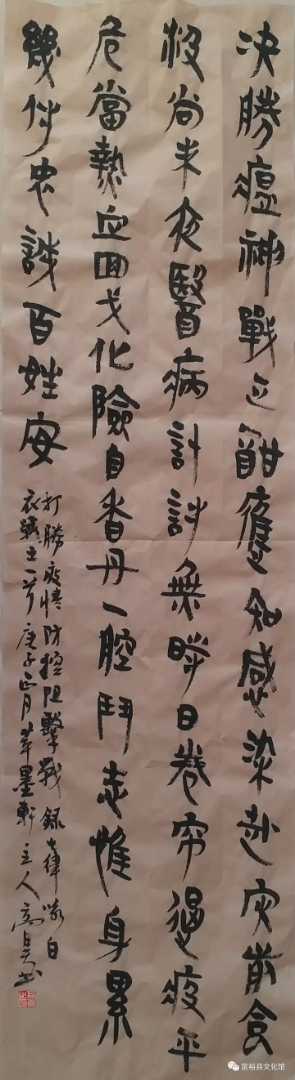 决勝瘟神戰正酣應知感染赴灾前食
尚未夜醫病計討衆睁日卷帘遏疫平
危當熱血回戈化險自香丹一腔鬥志惟身累
幾許忠誠百姓安
打勝疫情防控阻擊戰録七律致白
衣戰士一首庚子正月墨軒主人高書
富裕县文化馆